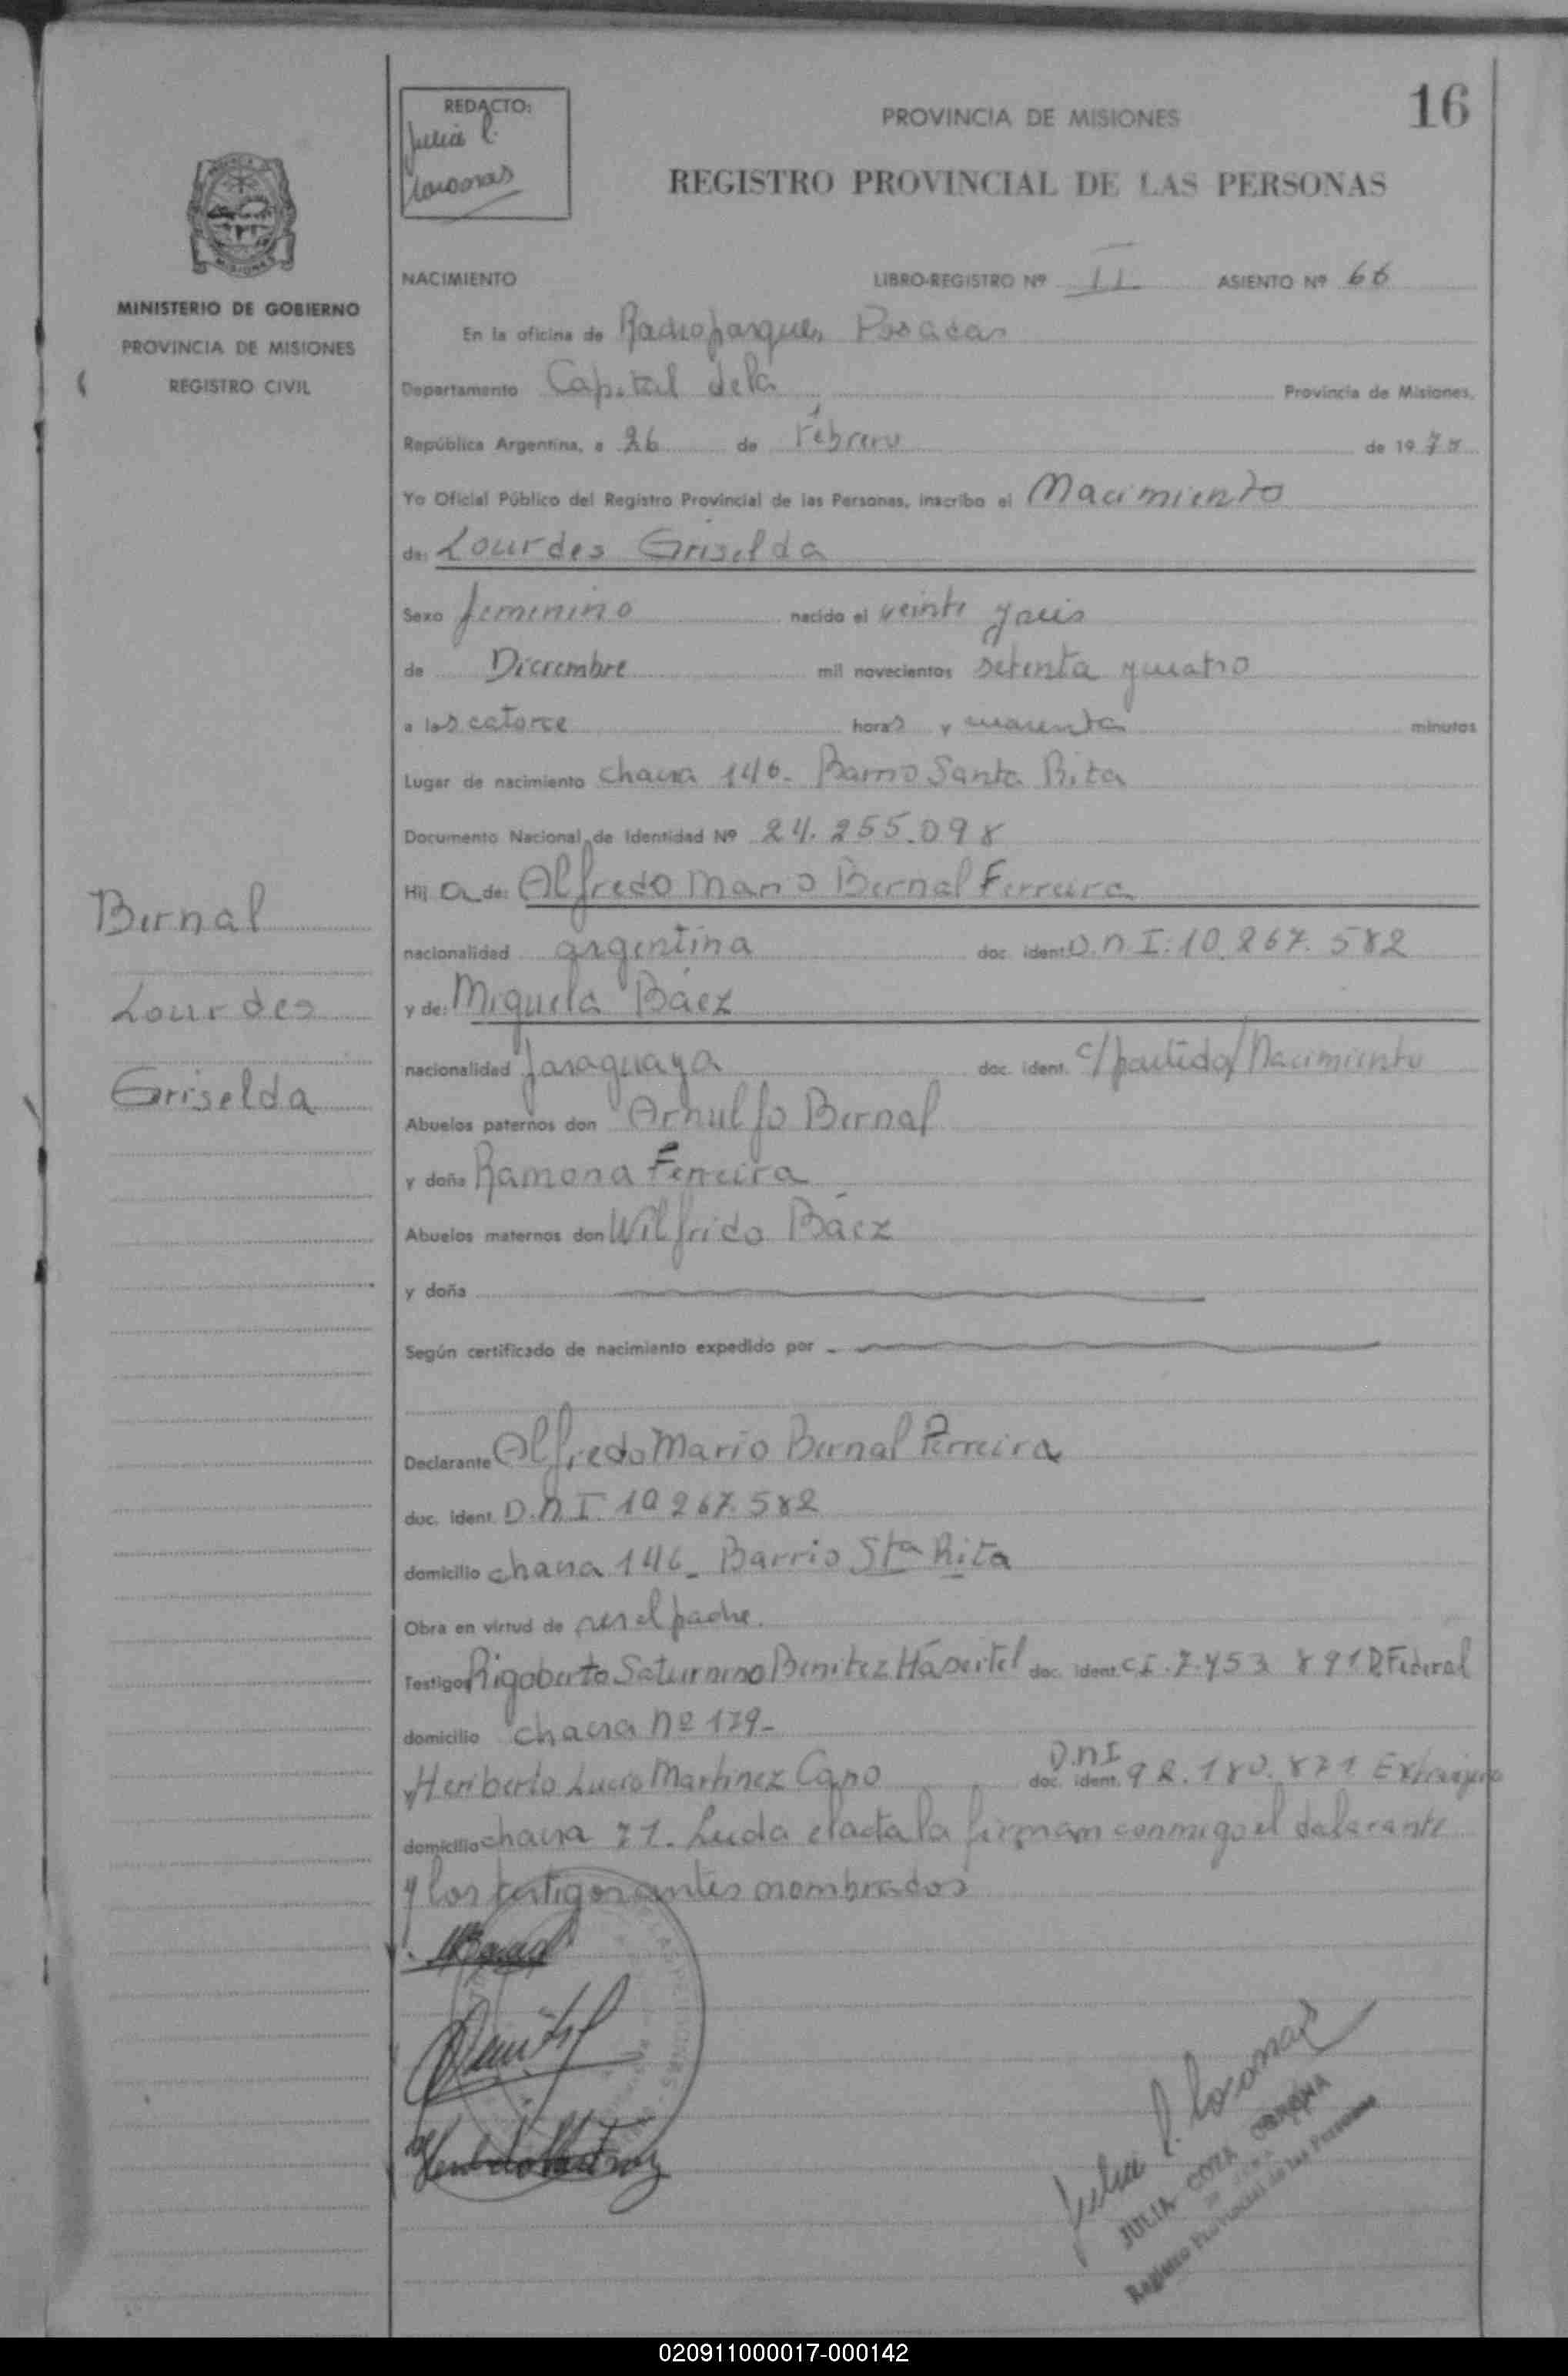 16
REDACTO:
Julia C.
PROVINCIA DE MISIONES
REGISTRO PROVINCIAL DE LAS PERSONAS
MISIONES
MINISTERIO DE GOBIERNO
PROVINCIA DE MISIONES
REGISTRO CIVIL
NACIMIENTO LIBRO-REGISTRO Nº II ASIENTO Nº 66
En la oficina de Posadas
Departamento Capital de la Provincia de Misiones,
República Argentina, a 26 de Febrero de 1975
Yo Oficial Público del Registro Provincial de las Personas, inscribo el Nacimiento
de: Lourdes Griselda
Sexo femenino nacido el veinte y seis
de Diciembre mil novecientos setenta y cuatro
a las catorce horas y cuarenta minutos
Lugar de nacimiento chacra 146- Barrio Santa Rita
Documento Nacional de Identidad Nº 24.255.098
Hij a de: Alfredo Mario Bernal Ferreira
nacionalidad argentina doc. ident. D.N.I: 10.267.582
y de: Miguela Báez
nacionalidad paraguaya doc. ident. c/partida/Nacimiento
Abuelos paternos don Arnulfo Bernal
y doña Ramona Ferreira
Abuelos maternos don Wilfrido Báez
y doña
Según certificado de nacimiento expedido por
Bernal
Lourdes
Griselda
Declarante Alfredo Mario Bernal Ferreira
doc. ident. D.N.I. 10 267.582
domicilio chacra 146_ Barrio Sta Rita
Obra en virtud de ser el padre.
Testigos Rigoberto Saturnino Benitez doc. ident. C.I. 7.453 891 P. Federal
domicilio chacra nº 179-
y Heriberto Lucio Martinez Cano doc. ident. D.N.I 92.180.871 Extranjero
domicilio chacra 71. Leida el acta la firman conmigo el declarante
y los testigos antes nombrados
Julia C.
JULIA COZA
Registro Provincial de las Personas
020911000017-000142